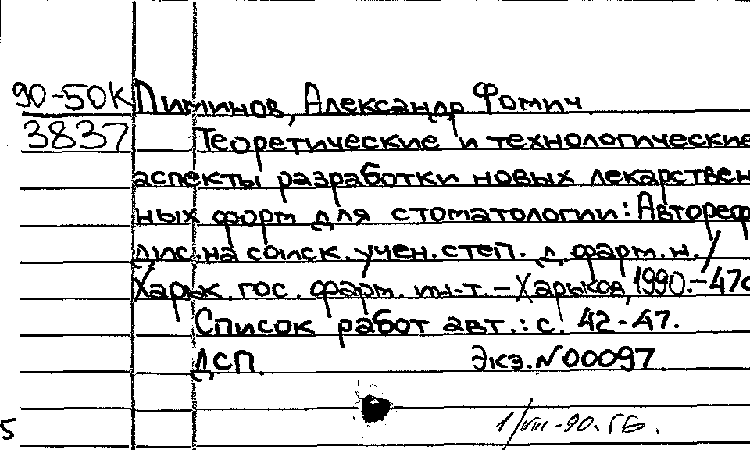 90-50К Пиминов, Александр Фомич
3837 Теоретические и технологические
аспекты разработки новых лекарствен
ных форм для стоматологии: Автореф
дис. на соиск. учен. степ. д. фарм. н. /
Харьк. гос. фарм. ин-т. – Харьков, 1990. – 47с
Список работ авт.: с. 42-47.
ДСП. Экз. №00097
5 1/VIII-90. ГБ.